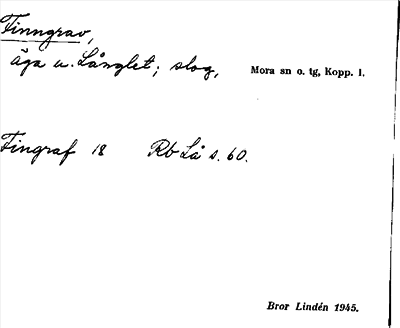 Finngrav,
äga u. Långlet; slog, Mora sn o. tg, Kopp. l.
Fingraf 18 Rb Lå s. 60.
Bror Lindén 1945.